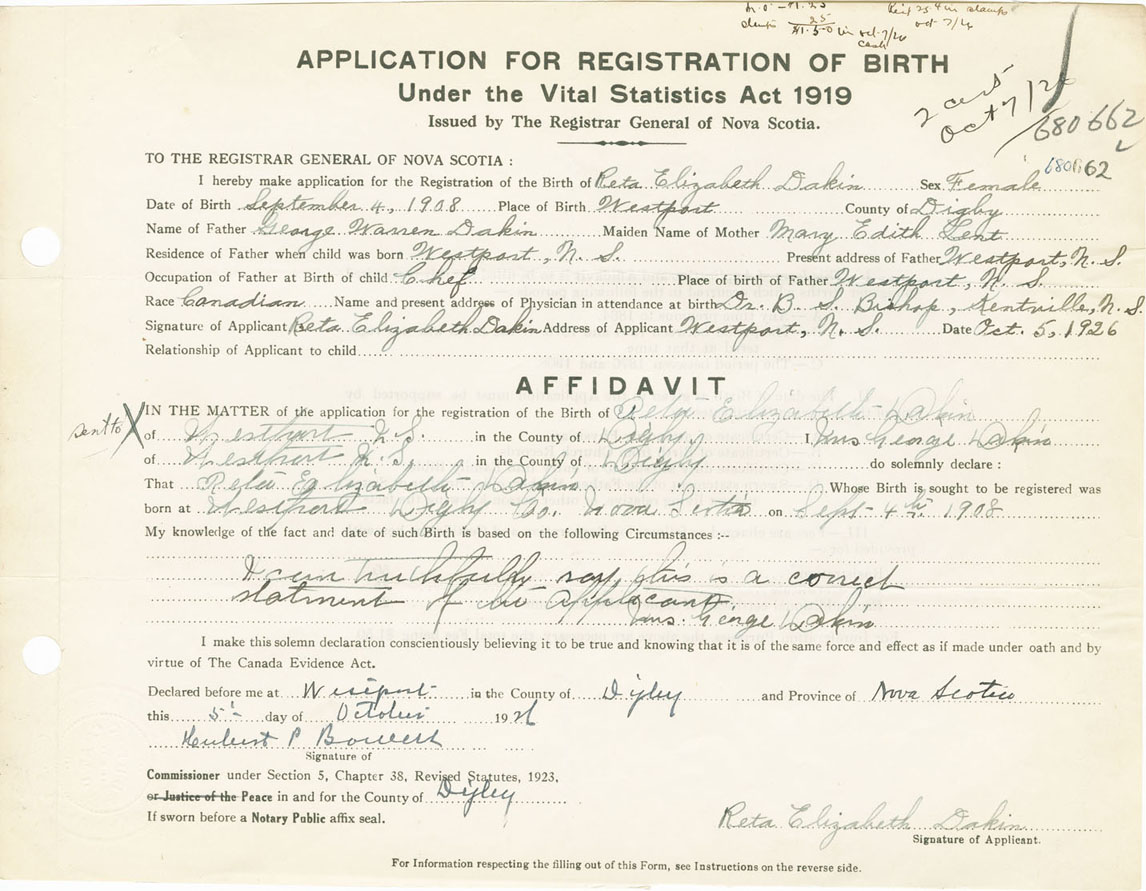 25
$1.50 in oct 7/26
cash
oct 7/26
APPLICATION FOR REGISTRATION OF BIRTH
Under the Vital Statistics Act 1919
Issued by The Registrar General of Nova Scotia.
2 certs
Oct 7/26
680662
680662
TO THE REGISTRAR GENERAL OF NOVA SCOTIA :
I hereby make application for the Registration of the Birth of Reta Elizabeth Dakin Sex Female
Date of Birth September 4, 1908 Place of Birth Westport County of Digby
Name of Father George Warren Dakin Maiden Name of Mother Mary Edith Lent
Residence of Father when child was born Westport, N. S. Present address of Father Westport, N. S.
Occupation of Father at Birth of child Chef Place of birth of Father Westport, N. S.
Race Canadian Name and present address of Physician in attendance at birth Dr. B. S. Bishop, Kentville, N. S.
Signature of Applicant Reta Elizabeth Dakin Address of Applicant Westport, N. S. Date Oct. 5, 1926
Relationship of Applicant to child
AFFIDAVIT
IN THE MATTER of the application for the registration of the Birth of Reta Elizabeth Dakin
sent to X of Westport N.S. in the County of Digby I, Mrs George Dakin
of Westport N.S. in the County of Digby do solemnly declare :
That Reta Elizabeth Dakin Whose Birth is sought to be registered was
born at Westport Digby Co. Nova Scotia on Sept- 4th 1908
My knowledge of the fact and date of such Birth is based on the following Circumstances :--
I can truthfully say this is a correct
statment of the applicant.
Mrs. George Dakin
I make this solemn declaration conscientiously believing it to be true and knowing that it is of the same force and effect as if made under oath and by
virtue of The Canada Evidence Act.
Declared before me at Westport in the County of Digby and Province of Nova Scotia
this 5th day of October 1926
Herbert P Bowers
Signature of
Commissioner under Section 5, Chapter 38, Revised Statutes, 1923,
or Justice of the Peace in and for the County of Digby
If sworn before a Notary Public affix seal.
Reta Elizabeth Dakin
Signature of Applicant.
For Information respecting the filling out of this Form, see Instructions on the reverse side.